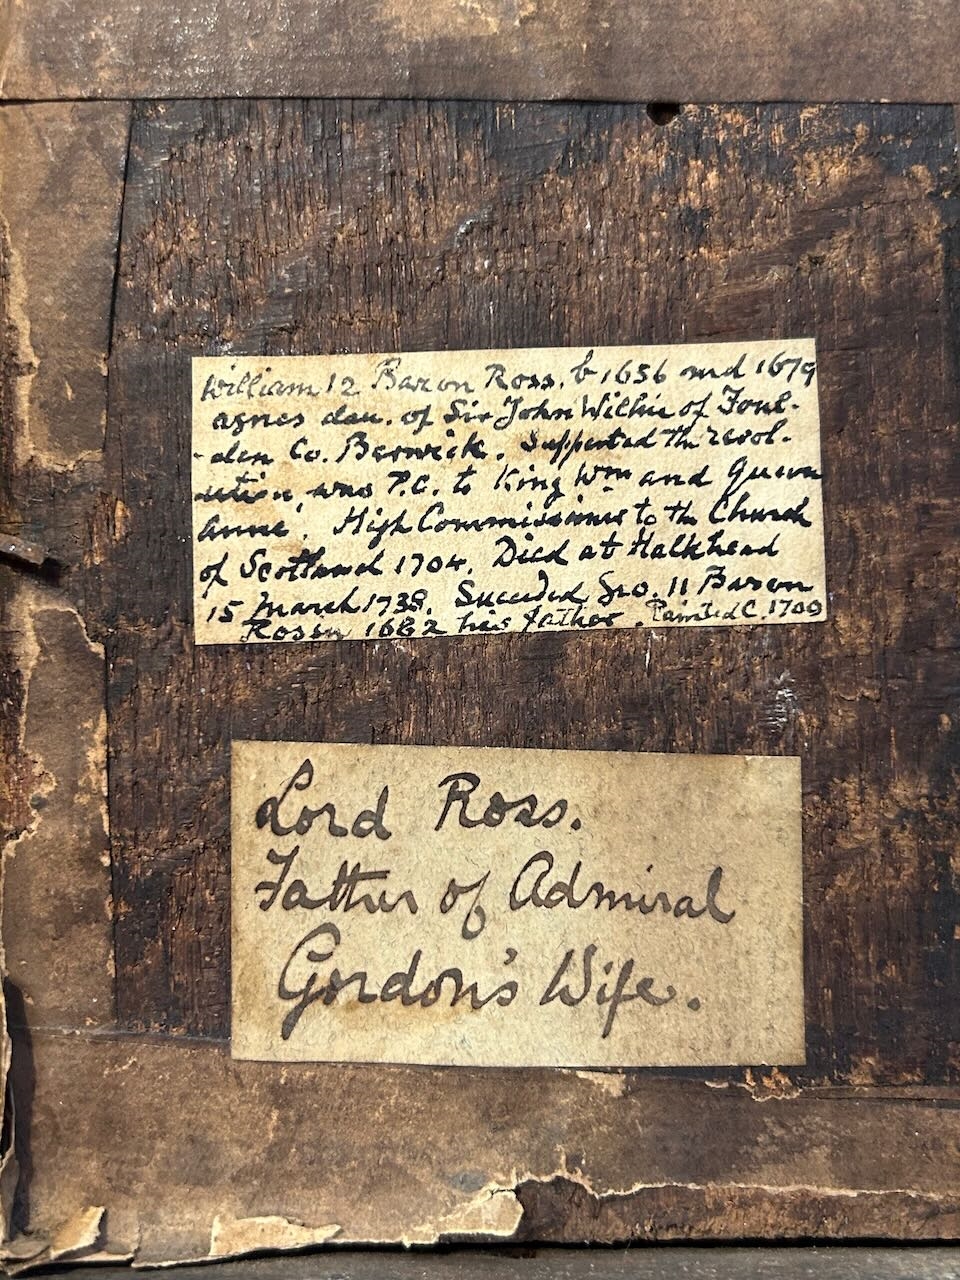 William 12 Baron Ross. b 1656 md 1679
agnes dau. of Sir John Wilkie of Foul-
-den Co. Berwick. Supported the revol-
ution, was P.C. to King Wm and Queen
Anne. High Commissioner to the Church
of Scotland 1704. Died at Halkhead
15 March 1738. Succeeded Geo. 11 Baron
Ross 1682 his father. Painted C. 1700
Lord Ross.
Father of Admiral
Gordon's Wife.